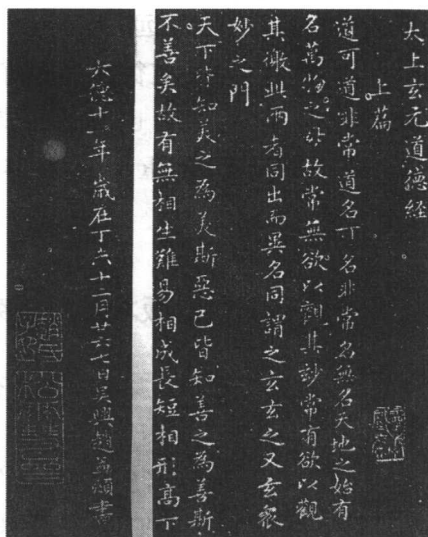 太上玄元道德經
上篇
道可道非常道名可名非常名無名天地之始有
名萬物之母故常無欲以觀其妙常有欲以觀
其徼此兩者同出而異名同謂之玄玄之又玄衆
妙之門
天下皆知美之為美斯惡已皆知善之為善斯
不善矣故有無相生難易相成長短相形高下
大德十一年歲在丁未十二月廿六七日吳興趙孟頫書